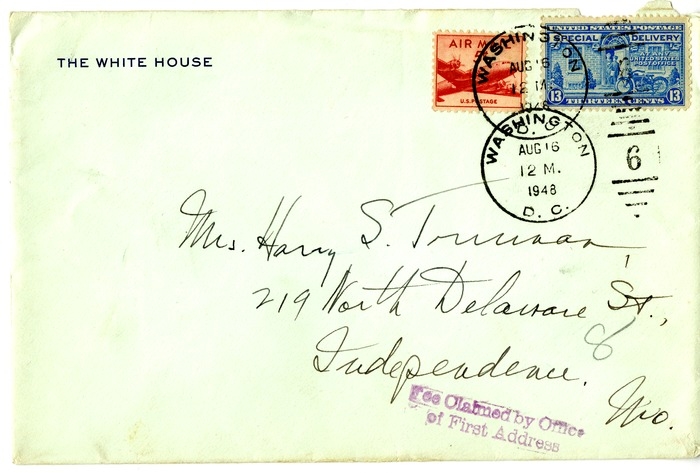 THE WHITE HOUSE
AIR M
U.S. POSTAGE
UNITED STATES POSTAGE
SPECIAL DELIVERY
AT ANY
UNITED STATES
POST OFFICE
13 13
THIRTEEN CENTS
WASHINGTON
AUG 16
12 M.
1948
D. C.
WASHINGTON
AUG 16
12 M.
1948
D. C.
6
Mrs. Harry S. Truman,
219 North Delaware St.,
8
Independence,
Mo.
Fee Claimed by Office
of First Address